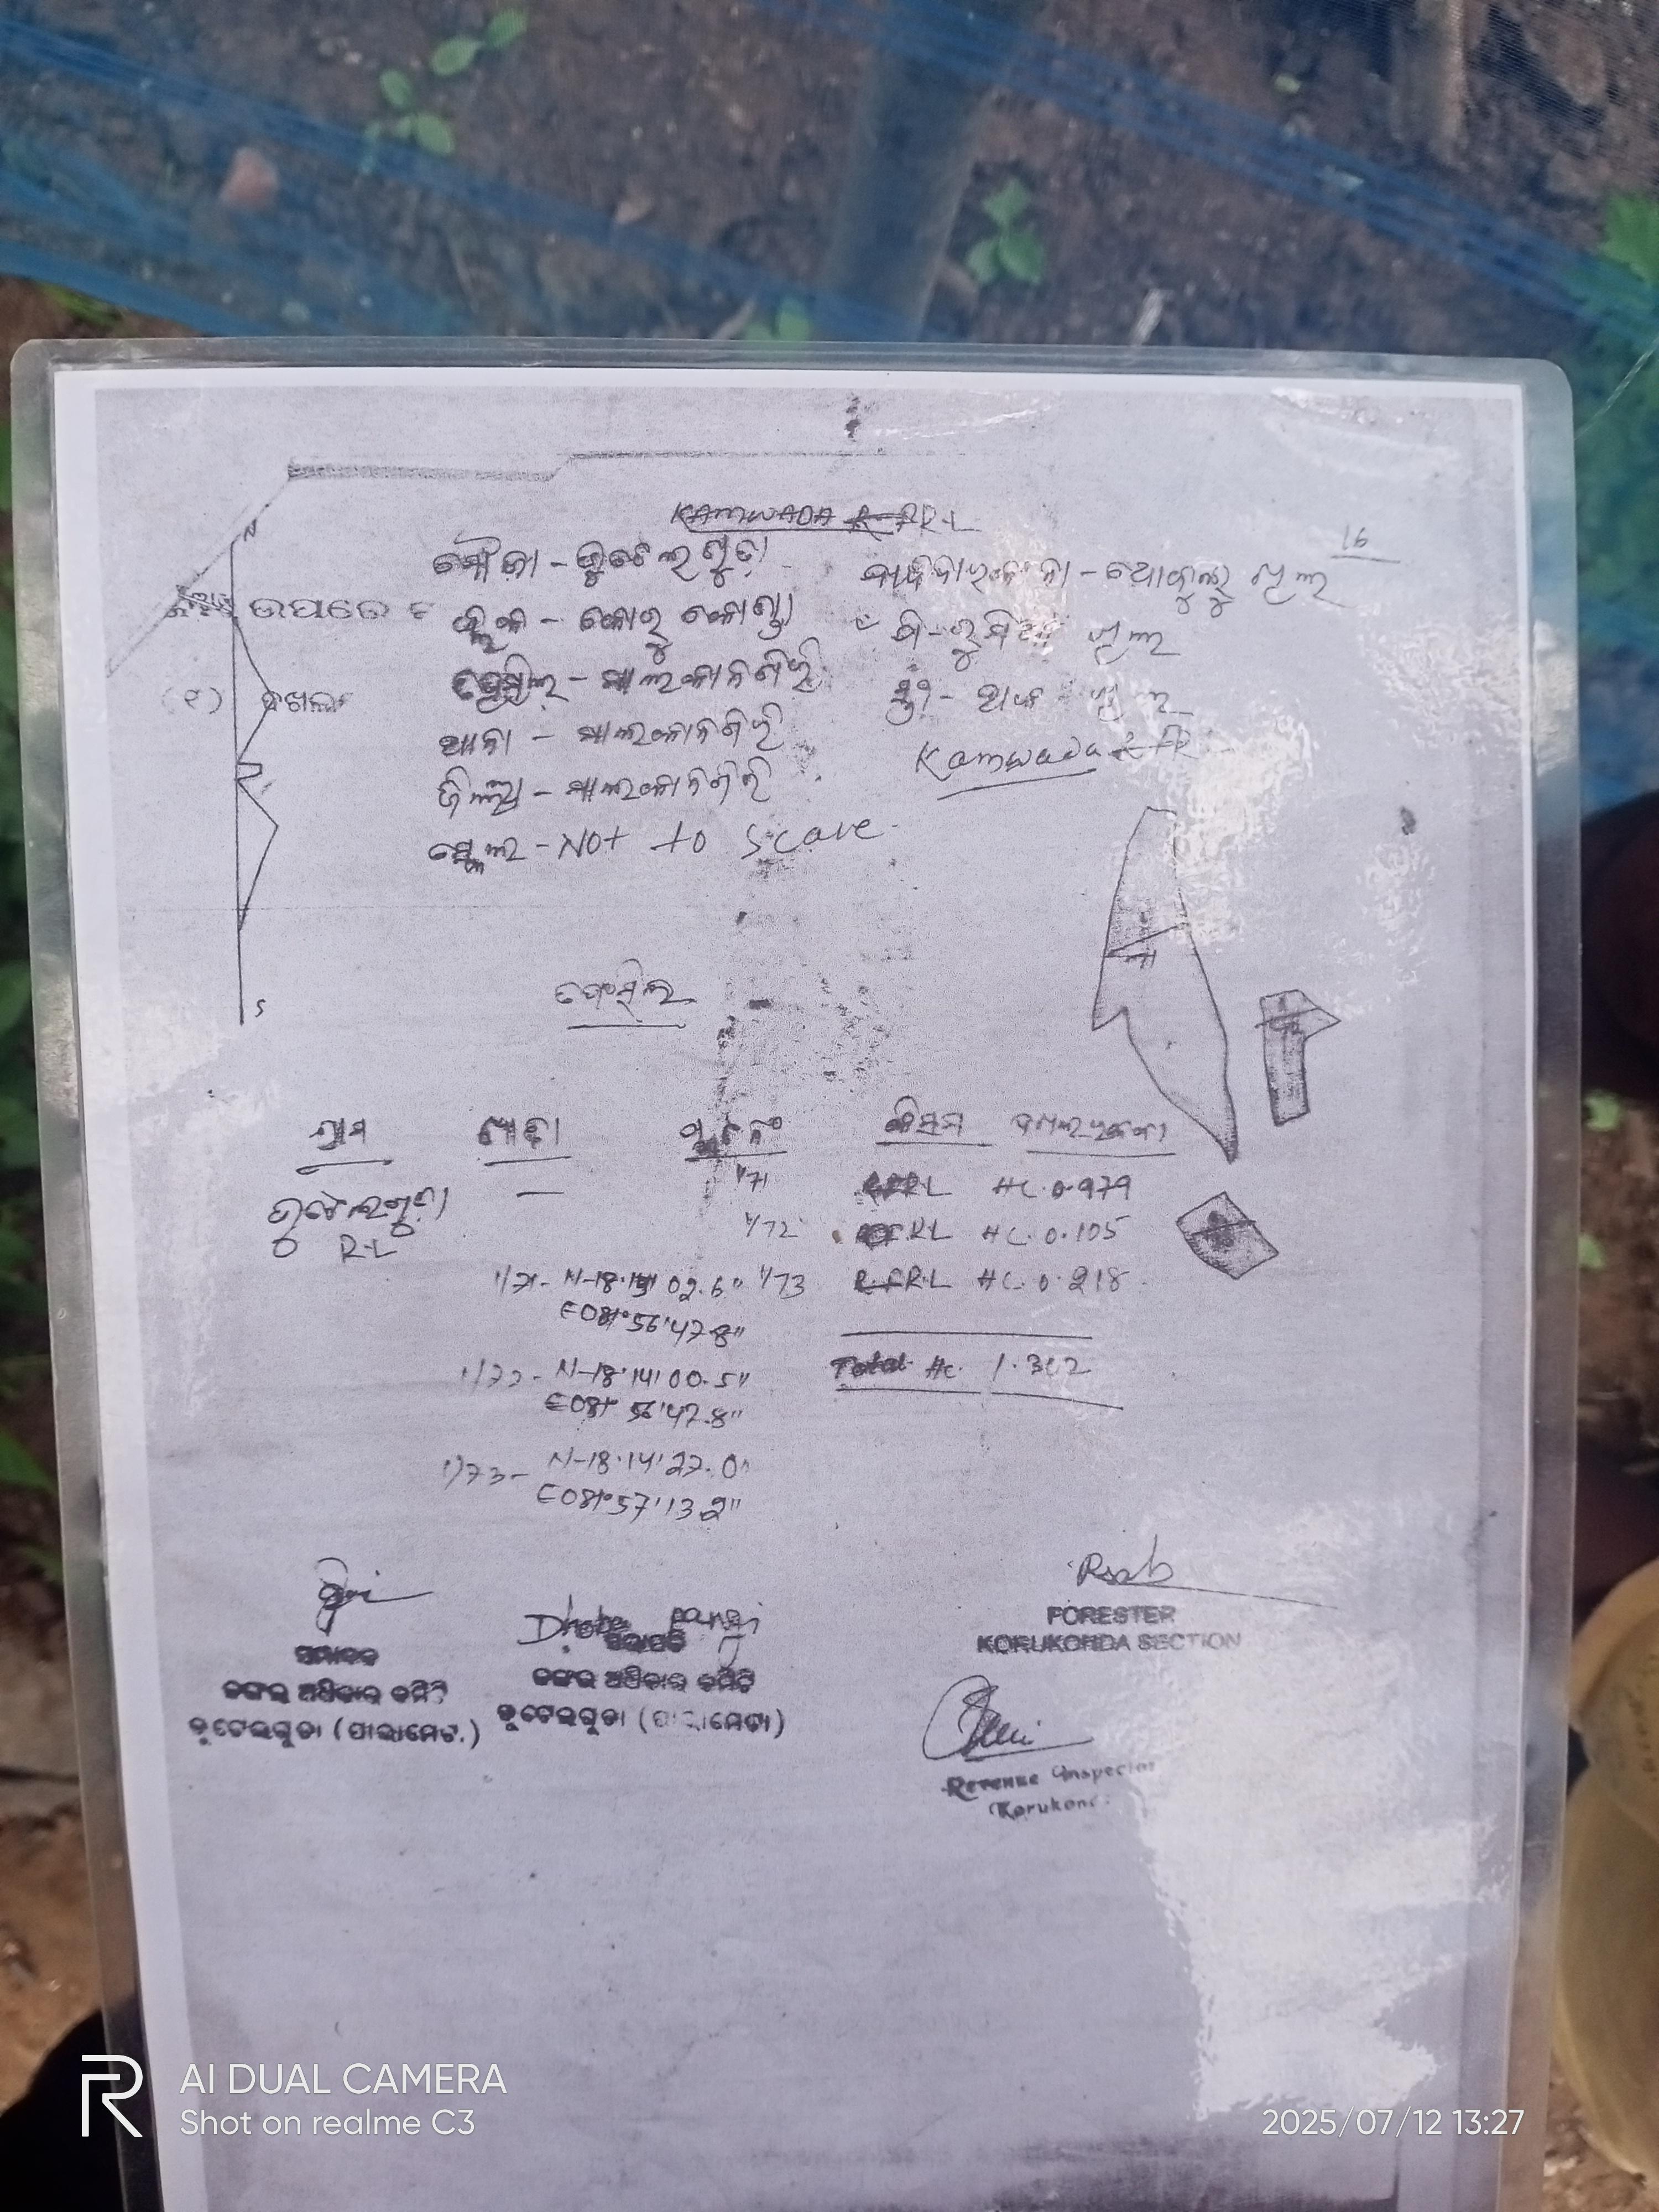 KAMWADA R.F R.L
16
ମୌଜା - କୁଟେଲଗୁଡ଼ା
ବ୍ଲକ - କୋରୁକୋଣ୍ଡା
ତହସିଲ - ମାଲକାନଗିରି
ଥାନା - ମାଲକାନଗିରି
ଜିଲ୍ଲା - ମାଲକାନଗିରି
ସ୍କେଲ - Not to Scale
ଉପରେ
(୧) ଦଖଲ
N
S
Kamwada R.FR
ଗ୍ରାମ
ଖାତା
ପ୍ଲଟ ନଂ
କିସମ
କୁଟେଲଗୁଡ଼ା
R.L
—
1/71 R.FR.L HC. 0.979
1/72 R.FR.L HC. 0.105
1/73 R.FR.L HC. 0.218
Total Hc. 1.302
1/71 - N-18°14' 02.6"
E081°56'47.8"
1/72 - N-18°14'00.5"
E081°56'47.8"
1/73 - N-18°14'27.0"
E081°57'13.2"
Dhoba pangi
ସମ୍ପାଦକ
ଜଙ୍ଗଲ ଅଧିକାର କମିଟି
କୁଟେଲଗୁଡା (ପାଲାମେଟା)
ସଭାପତି
ଜଙ୍ଗଲ ଅଧିକାର କମିଟି
କୁଟେଲଗୁଡା (ପାଲାମେଟା)
FORESTER
KORUKONDA SECTION
Revenue Inspector
Korukond
AI DUAL CAMERA
Shot on realme C3
2025/07/12 13:27